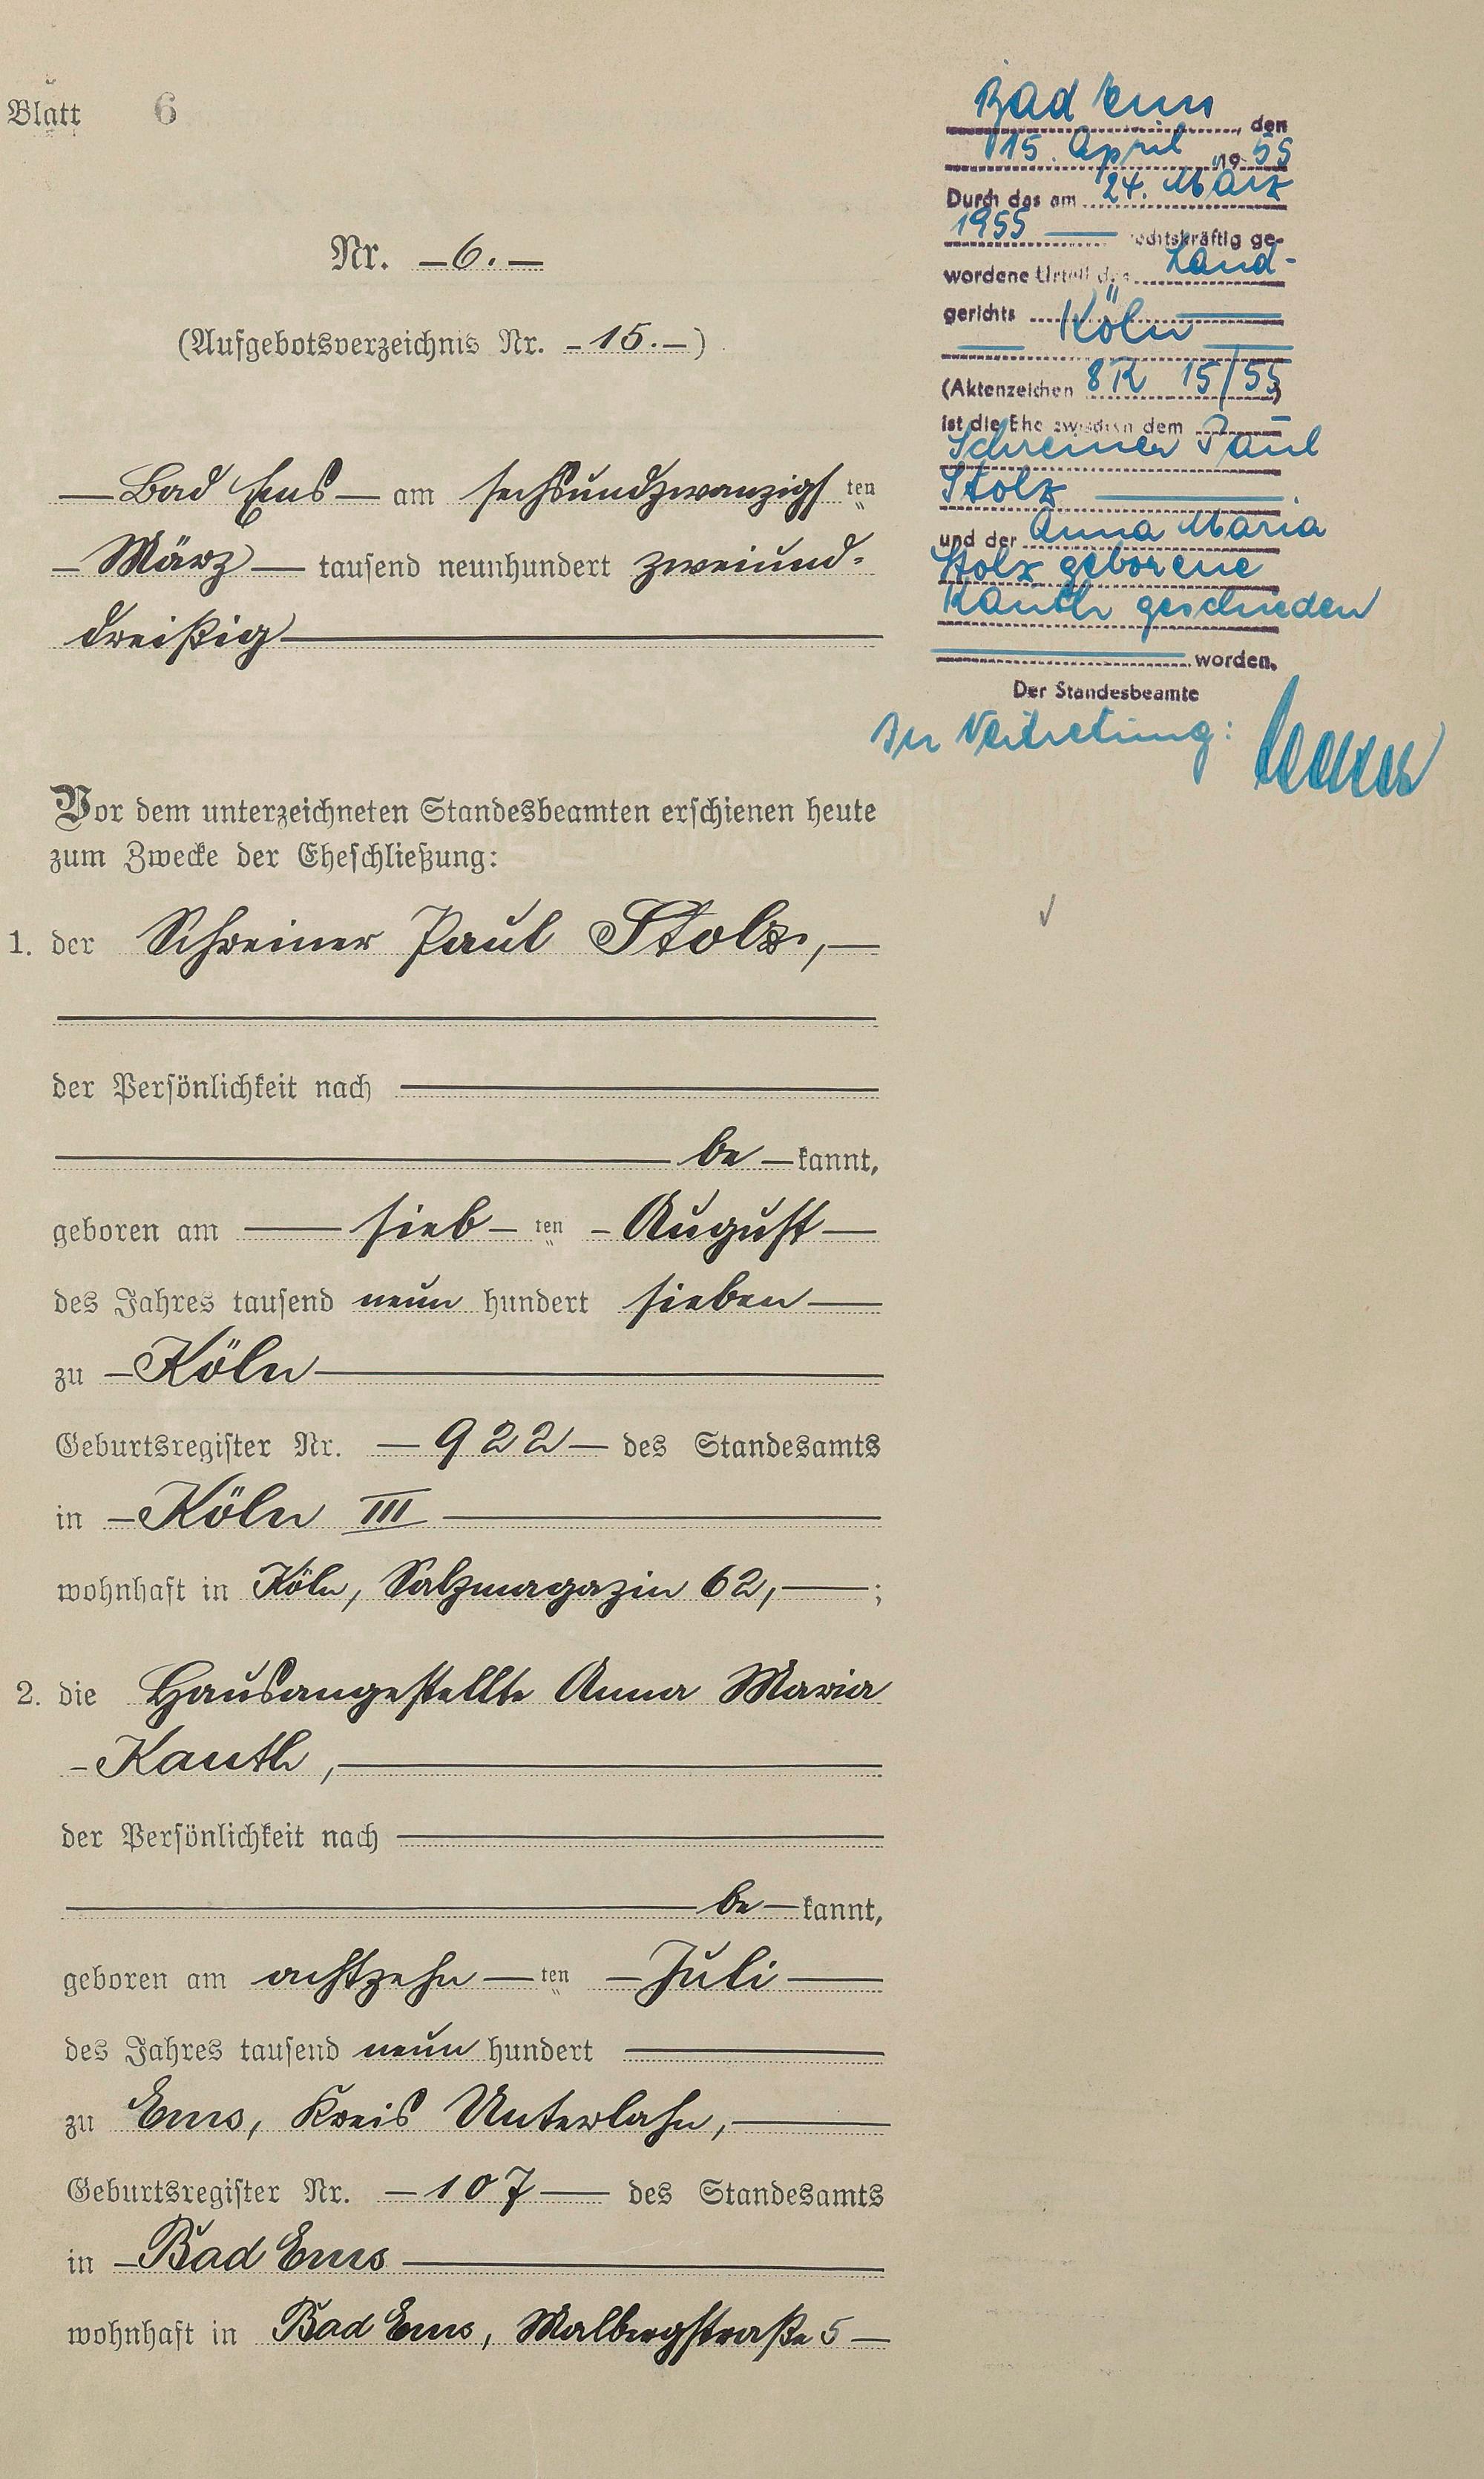 Blatt 6
Nr. – 6. –
(Aufgebotsverzeichnis Nr. – 15. –)
— Bad Ems — am sechsundzwanzigs ten
– März — tausend neunhundert zweiund-
dreißig —
Vor dem unterzeichneten Standesbeamten erschienen heute
zum Zwecke der Eheschließung:
1. der Schreiner Paul Stolz, —
der Persönlichkeit nach —
— be — kannt,
geboren am — sieb – ten – August —
des Jahres tausend neun hundert sieben —
zu – Köln —
Geburtsregister Nr. — 922 — des Standesamts
in – Köln III —
wohnhaft in Köln, Salzmagazin 62, — ;
2. die Hausangestellte Anna Maria
– Kauth, —
der Persönlichkeit nach —
— be — kannt,
geboren am achtzehn — ten – Juli —
des Jahres tausend neun hundert —
zu Ems, Kreis Unterlahn, —
Geburtsregister Nr. – 107 — des Standesamts
in – Bad Ems —
wohnhaft in Bad Ems, Malbergstraße 5 —
Bad Ems, den
15. April 19 55
Durch das am 24. März
1955 — rechtskräftig ge-
wordene Urteil des Land-
gerichts Köln —
(Aktenzeichen 8 R 15/55)
ist die Ehe zwischen dem
Schreiner Paul
Stolz —
und der Anna Maria
Stolz geborene
Kauth geschieden
— worden.
Der Standesbeamte
In Vertretung: